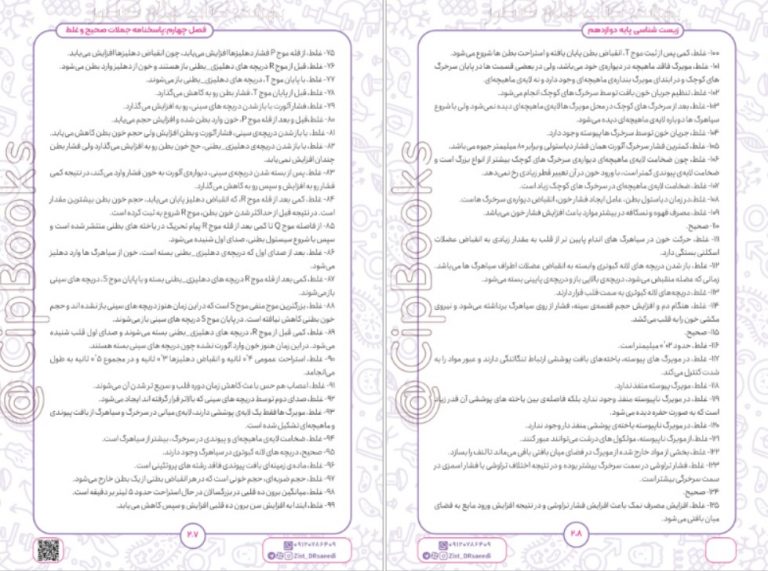 زیست شناسی پایه دوازدهم
فصل چهارم: پاسخنامه جملات صحیح و غلط
۷۵- غلط، از قله موج P فشار دهلیزها افزایش می‌یابد، چون انقباض دهلیزها افزایش می‌یابد.
۷۶- غلط، قبل از موج R دریچه های دهلیزی_بطنی باز هستند و خون از دهلیز وارد بطن می‌شود.
۷۷- غلط، با پایان موج T، دریچه های دهلیزی_بطنی باز می‌شوند.
۷۸- غلط، قبل از پایان موج T، فشار بطن رو به کاهش می‌گذارد.
۷۹- غلط، فشار آئورت با باز شدن دریچه های سینی، رو به افزایش می‌گذارد.
۸۰- غلط، قبل و بعد از قله موج P، خون وارد بطن شده و افزایش حجم می‌یابد.
۸۱- غلط، با باز شدن دریچه‌ی سینی، فشار آئورت و بطن افزایش ولی حجم خون بطن کاهش می یابد.
۸۲- غلط، با باز شدن دریچه‌ی دهلیزی_بطنی، حج خون بطن رو به افزایش می‌گذارد ولی فشار بطن
چندان افزایش نمی‌یابد.
۸۳- غلط، پس از بسته شدن دریچه‌ی سینی، دیواره‌ی آئورت به خون فشار وارد می‌کند، در نتیجه کمی
فشار رو به افزایش و سپس رو به کاهش می‌گذارد.
۸۴- غلط، کمی بعد از قله موج R، که انقباض دهلیز پایان می‌یابد، حجم خون بطن بیشترین مقدار
است. در نتیجه قبل از حداکثر شدن خون بطن، موج R شروع به ثبت کرده است.
۸۵- از فاصله موج Q تا کمی بعد از قله موج R پیام تحریک در یاخته های بطنی منتشر شده است و
سپس با شروع سیستول بطنی، صدای اول شنیده می‌شود.
۸۶- غلط، بعد از صدای اول که دریچه‌ی دهلیزی_بطنی بسته است، خون از سیاهرگ ها وارد دهلیز
می‌شود.
۸۷- غلط، کمی بعد از قله موج R دریچه های دهلیزی_بطنی بسته و با پایان موج S، دریچه های سینی
باز می‌شوند.
۸۸- غلط، بزرگترین موج منفی موج S است که در این زمان هنوز دریچه های سینی باز نشده اند و حجم
خون بطنی کاهش نیافته است. در پایان موج S دریچه های سینی باز می‌شوند.
۸۹- غلط، کمی قبل از موج R، دریچه های دهلیزی_بطنی بسته می‌شوند و صدای اول قلب شنیده
می‌شود. در این زمان هنوز خون وارد آئورت نشده چون دریچه های سینی بسته هستند.
۹۰- غلط، استراحت عمومی ۰٫۴ ثانیه و انقباض دهلیزها ۰٫۳ ثانیه و در مجموع ۰٫۵ ثانیه به طول
می‌انجامد.
۹۱- غلط، اعصاب هم حس باعث کاهش زمان دوره قلب و سریع تر شدن آن می‌شوند.
۹۲- غلط، صدای دوم توسط دریچه های سینی که بالاتر قرار گرفته اند ایجاد می‌شود.
۹۳- غلط، مویرگ ها فقط یک لایه‌ی پوششی دارند، لایه‌ی میانی در سرخرگ و سیاهرگ از بافت پیوندی
و ماهیچه‌ای تشکیل شده است.
۹۴- غلط، ضخامت لایه‌ی ماهیچه‌ای و پیوندی در سرخرگ، بیشتر از سیاهرگ است.
۹۵- صحیح، دریچه های لانه کبوتری در سیاهرگ وجود دارند.
۹۶- غلط، ماده‌ی زمینه‌ای بافت پیوندی فاقد رشته های پروتئینی است.
۹۷- غلط، حجم ضربه‌ای، حجم خونی است که در هر انقباض بطنی از یک بطن خارج می‌شود.
۹۸- غلط، میانگین برون ده قلبی در بزرگسالان در حال استراحت حدود ۵ لیتر بر دقیقه است.
۹۹- غلط، ابتدا به افزایش سن برون ده قلبی افزایش و سپس کاهش می یابد.
۲۰۷
۰۹۱۲۰۷۸۶۴۰۹
Zist_DRsaeedi
۱۰۰- غلط، کمی پس از ثبت موج T، انقباض بطن پایان یافته و استراحت بطن ها شروع می‌شود.
۱۰۱- غلط، مویرگ فاقد ماهیچه در دیواره‌ی خود می‌باشد، ولی در بعضی قسمت ها در پایان سرخرگ
های کوچک و در ابتدای مویرگ بنداره‌ی ماهیچه‌ای وجود دارد و نه لایه‌ی ماهیچه‌ای.
۱۰۲- غلط، تنظیم جریان خون بافت توسط سرخرگ های کوچک انجام می‌شود.
۱۰۳- غلط، بعد از سرخرگ های کوچک در محل مویرگ ها لایه‌ی ماهیچه‌ای دیده نمی‌شود ولی با شروع
سیاهرگ ها دوباره لایه‌ی ماهیچه‌ای دیده می‌شود.
۱۰۴- غلط، جریان خون توسط سرخرگ ها پیوسته وجود دارد.
۱۰۵- غلط، کمترین فشار سرخرگ آئورت همان فشار دیاستولی و برابر ۸۰ میلیمتر جیوه می باشد.
۱۰۶- غلط، چون ضخامت لایه‌ی ماهیچه‌ای دیواره‌ی سرخرگ های کوچک بیشتر از انواع بزرگ است و
ضخامت لایه‌ی پیوندی کمتر است، با ورود خون در آن تغییر قطر زیادی رخ نمی‌دهد.
۱۰۷- غلط، ضخامت لایه‌ی ماهیچه‌ای در سرخرگ های کوچک زیاد است.
۱۰۸- غلط، در زمان دیاستول بطن، عامل ایجاد فشار خون، انقباض دیواره‌ی سرخرگ هاست.
۱۰۹- غلط، مصرف قهوه و نسکافه در بیشتر موارد باعث افزایش فشار خون می‌باشد.
۱۱۰- صحیح.
۱۱۱- غلط، حرکت خون در سیاهرگ های اندام پایین تر از قلب به مقدار زیادی به انقباض عضلات
اسکلتی بستگی دارد.
۱۱۲- غلط، باز شدن دریچه های لانه کبوتری وابسته به انقباض عضلات اطراف سیاهرگ ها می‌باشد.
زمانی که عضله منقبض می‌شود، دریچه‌ی بالایی باز و دریچه‌ی پایینی بسته می‌شود.
۱۱۳- غلط، دریچه‌های لانه کبوتری به سمت قلب قرار دارند.
۱۱۴- غلط، هنگام دم و افزایش حجم قفسه‌ی سینه، فشار از روی سیاهرگ برداشته می‌شود و نیروی
مکشی خون را به قلب می‌کشد.
۱۱۵- صحیح.
۱۱۶- غلط، حدود ۰٫۰۲ میلیمتر است.
۱۱۷- غلط، در مویرگ های پیوسته، یاخته‌های بافت پوششی ارتباط تنگاتنگی دارند و عبور مواد را به
شدت کنترل می‌کند.
۱۱۸- غلط، مویرگ پیوسته منفذ ندارد.
۱۱۹- غلط، در مویرگ ناپیوسته منفذ وجود ندارد بلکه فاصله‌ی بین یاخته های پوششی آن قدر زیاد
است که به صورت حفره دیده می‌شود.
۱۲۰- غلط، در مویرگ ناپیوسته یاخته‌ی پوششی منفذ دار وجود ندارد.
۱۲۱- غلط، از مویرگ ناپیوسته، مولکول های درشت می‌توانند عبور کنند.
۱۲۲- غلط، بخشی از مواد خارج شده از مویرگ در فضای میان بافتی باقی می‌ماند تا لنف را بسازد.
۱۲۳- غلط، فشار تراوشی در سمت سرخرگ بیشتر بوده و در نتیجه اختلاف تراوشی با فشار اسمزی در
سمت سرخرگی بیشتر است.
۱۲۴- صحیح.
۱۲۵- غلط، افزایش مصرف نمک باعث افزایش فشار تراوشی و در نتیجه افزایش ورود مایع به فضای
میان بافتی می‌شود.
۲۰۸
۰۹۱۲۰۷۸۶۴۰۹
Zist_DRsaeedi
@CipBooks
@CipBooks